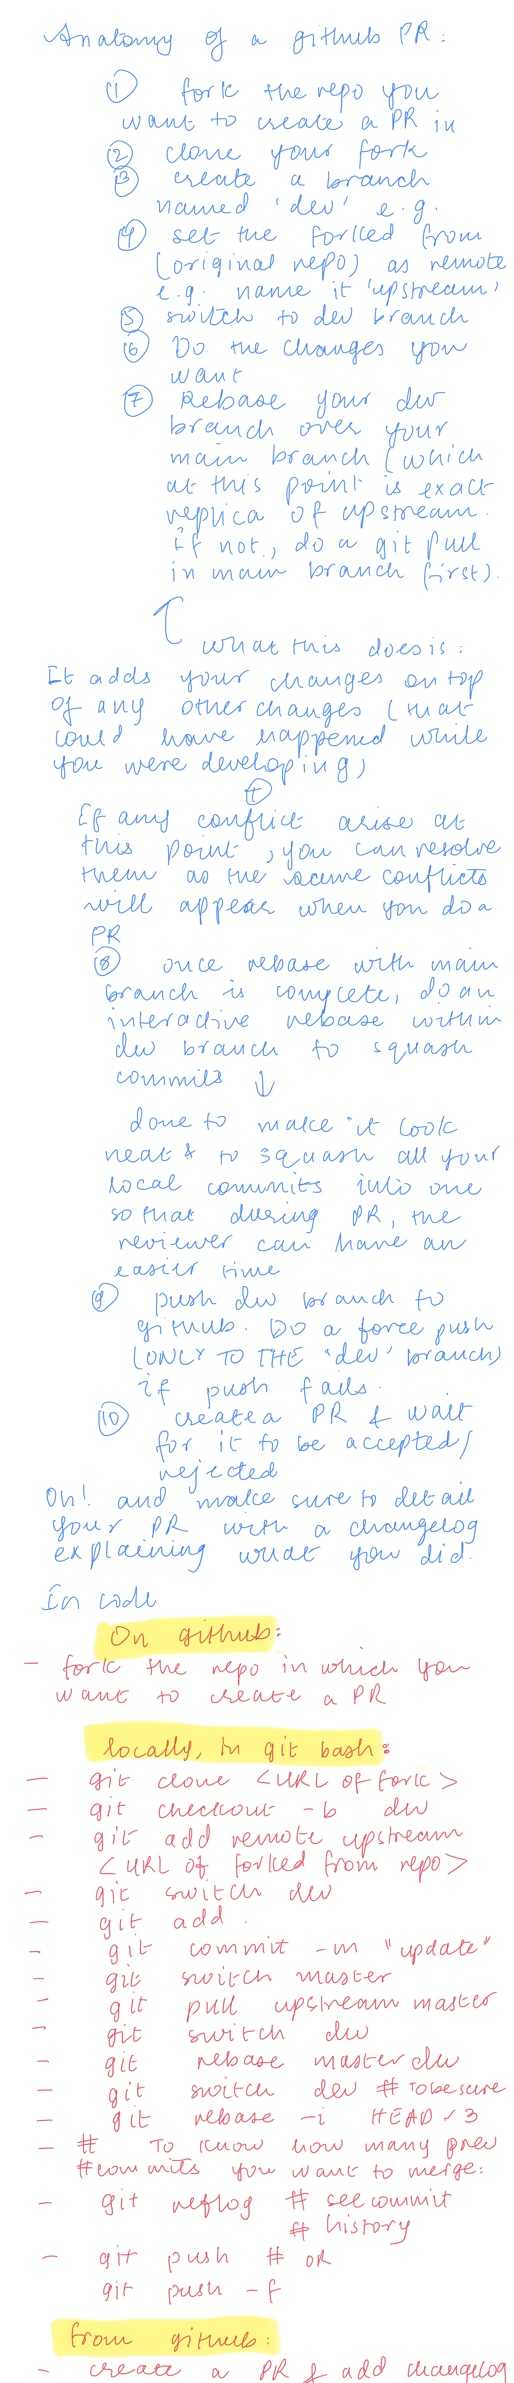 Anatomy of a github PR:
① fork the repo you
want to create a PR in
② clone your fork
③ create a branch
named 'dev' e.g.
④ set the forked from
(original repo) as remote
e.g. name it 'upstream'
⑤ switch to dev branch
⑥ Do the changes you
want
⑦ Rebase your dev
branch over your
main branch (which
at this point is exact
replica of upstream.
if not, do a git pull
in main branch first).
what this does is:
It adds your changes on top
of any other changes (that
could have happened while
you were developing)
+
If any conflict arise at
this point, you can resolve
them as the same conflicts
will appear when you do a
PR
⑧ once rebase with main
branch is complete, do an
interactive rebase within
dev branch to squash
commits ↓
done to make it look
neat & to squash all your
local commits into one
so that during PR, the
reviewer can have an
easier time
⑨ push dev branch to
github. Do a force push
(ONLY TO THE 'dev' branch)
if push fails.
⑩ create a PR & wait
for it to be accepted/
rejected
Oh! and make sure to detail
your PR with a changelog
explaining what you did.
In code
On github:
- fork the repo in which you
want to create a PR
locally, in git bash:
- git clone <URL of fork>
- git checkout -b dev
- git add remote upstream
<URL of forked from repo>
- git switch dev
- git add .
- git commit -m "update"
- git switch master
- git pull upstream master
- git switch dev
- git rebase master dev
- git switch dev # to be sure
- git rebase -i HEAD~3
- # To know how many prev
# commits you want to merge:
- git reflog # see commit
# history
- git push # OR
git push -f
from github:
- create a PR & add changelog